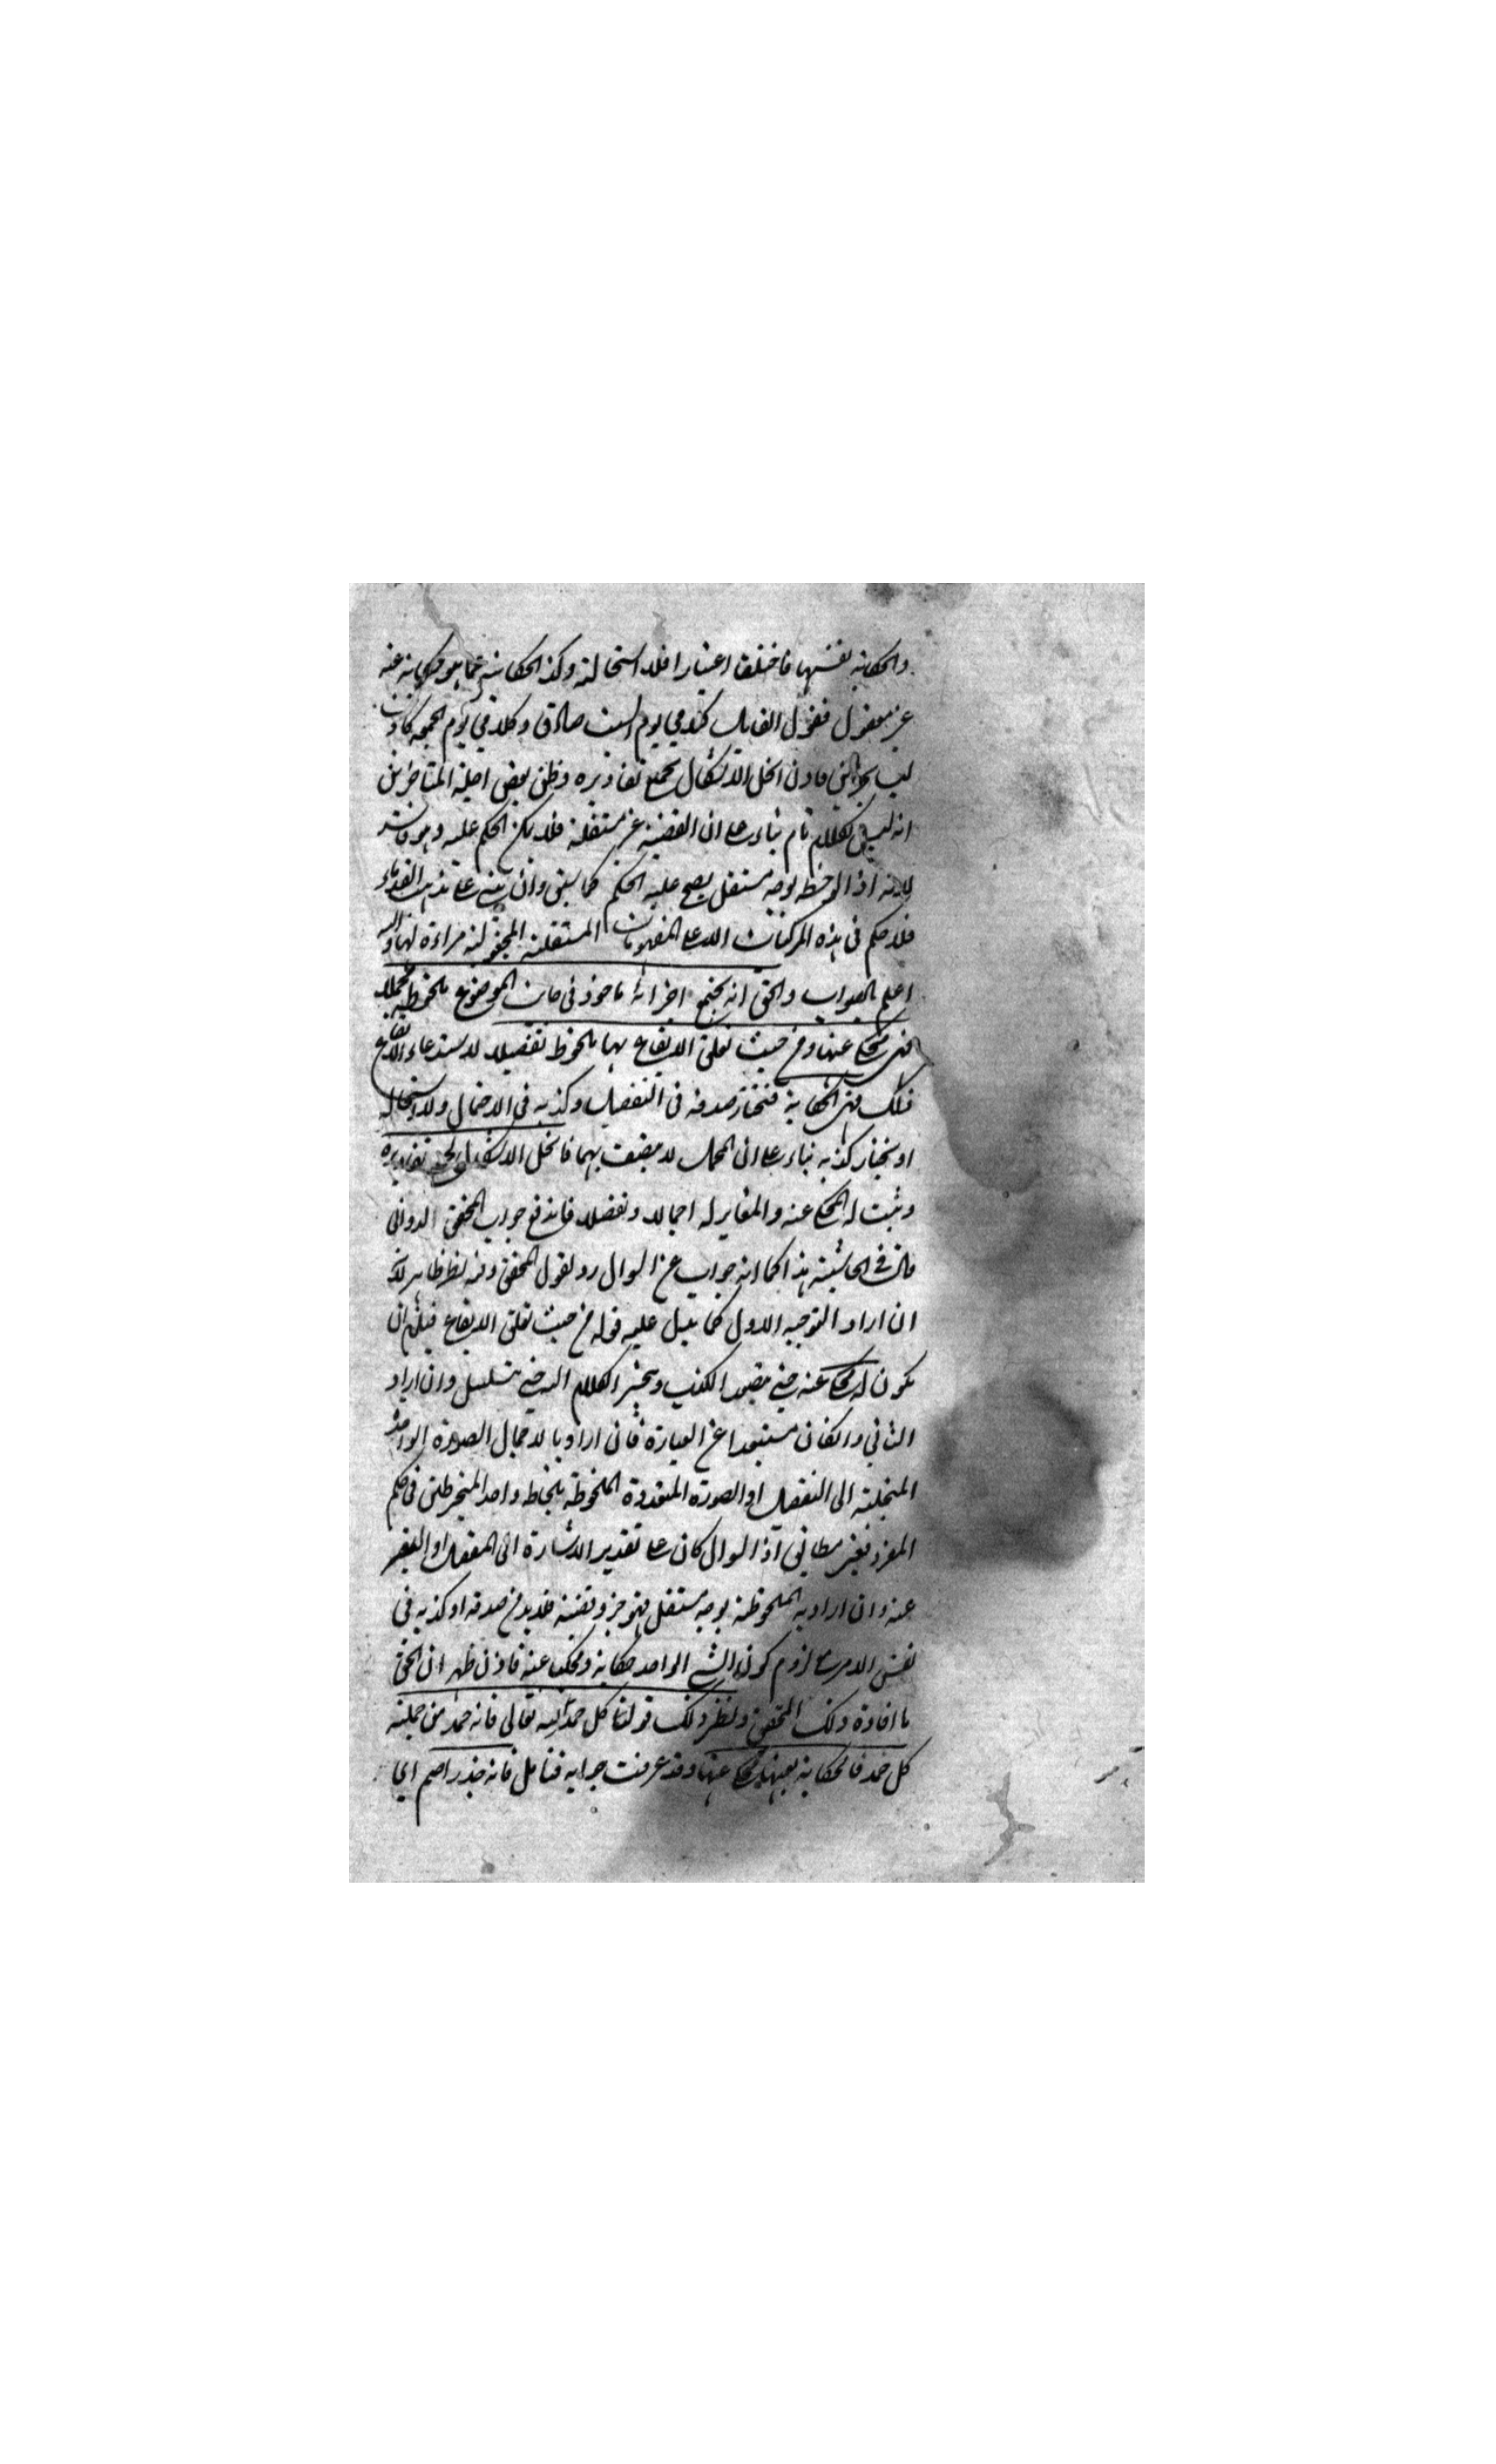 والحكاية نفسها فاختلفا اعتبارا فلا استحالة وكذا الحكاية عما هو حكاية عنه
غير معقول فقول القايل كلامي يوم السبت صادق وكلامي يوم الجمعة كاذب
ليس بخبر فاذن انحل الاشكال بجميع تقاديره وظن بعض اجلة المتاخرين
انه ليس بكلام تام بناء على ان القضية غير مستقلة فلا يمكن الحكم عليه وهو فاسد
لانه اذا لوحظ بوجه مستقل يصح عليه الحكم كما سبق وان بني على مذهب القدماء
فلا حكم في هذه المركبات الا على المفهومات المستقلة المجعولة مراءة لها والله
اعلم بالصواب والحق انه بجميع اجزائه ماخوذ في جانب الموضوع ملحوظ مجملا
فهي محكي عنها ومن حيث تعلق الايقاع بها ملحوظ تفصيلا لاستدعاء الايقاع
ذلك فهي الحكاية فنختار صدقه في التفصيل وكذبه في الاجمال ولا استحالة
او نختار كذبه بناء على ان المجمل لا يتصف بهما فانحل الاشكال بجميع تقاديره
وثبت له المحكي عنه والمغاير له اجمالا وتفصيلا فاندفع جواب المحقق الدواني
قال في الحاشية هذا كما انه جواب عن السوال رد لقول المحقق وفيه نظر ظاهر لانه
ان اراد التوجيه الاول كما يدل عليه قوله من حيث تعلق الايقاع فيلزم ان
يكون له محكي عنه حتى يتصور الكذب وينجر الكلام اليه حتى يتسلسل وان اراد
الثاني وان كان مستبعدا عن العبارة فان اراد بالاجمال الصورة الواحدة
المنحلة الى التفصيل او الصورة المتعددة الملحوظة بلحاظ واحد المنخرطتين في حكم
المفرد فغير مطابق اذ السوال كان على تقدير الاشارة الى المفصل او المعبر
عنه وان اراد به الملحوظة بوجه مستقل فهو جزو قضية فلا بد من صدقه او كذبه في
نفس الامر مع لزوم كون الشي الواحد حكاية ومحكيا عنه فاذن ظهر ان الحق
ما افاده ذلك المحقق ونظير ذلك قولنا كل حمد لله تعالى فانه حمد من جملة
كل حمد فالحكاية بعينها محكي عنها وقد عرفت جوابه فتامل فانه جذر اصم